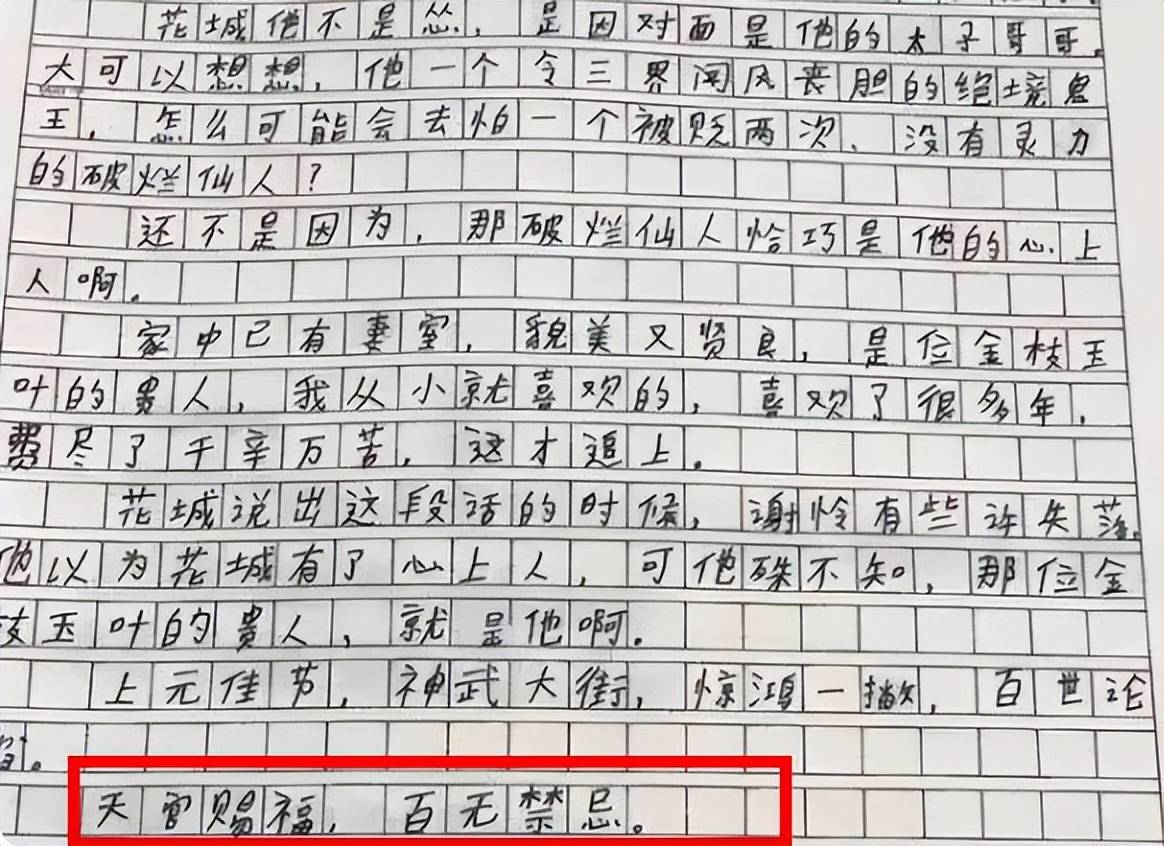 花城他不是怂，是因对面是他的太子哥哥。
大可以想想，他一个令三界闻风丧胆的绝境鬼
王，怎么可能会去怕一个被贬两次、没有灵力
的破烂仙人？
还不是因为，那破烂仙人恰巧是他的心上
人啊。
家中已有妻室，貌美又贤良，是位金枝玉
叶的贵人，我从小就喜欢的，喜欢了很多年，
费尽了千辛万苦，这才追上。
花城说出这段话的时候，谢怜有些许失落。
他以为花城有了心上人，可他殊不知，那位金
枝玉叶的贵人，就是他啊。
上元佳节，神武大街，惊鸿一撇，百世沦
。
天官赐福，百无禁忌。